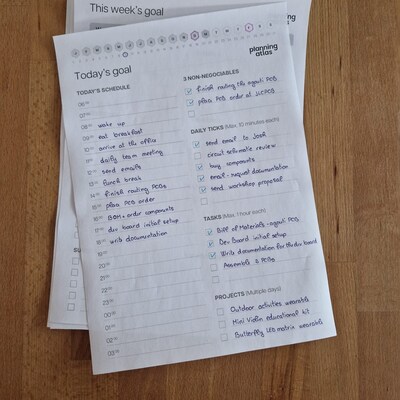 This week's goal
planning
atlas
Today's goal
TODAY'S SCHEDULE
06⁰⁰
07⁰⁰
08⁰⁰ wake up
09⁰⁰ eat breakfast
10⁰⁰ arrive at the office
11⁰⁰ daily team meeting
12⁰⁰ send emails
13⁰⁰ lunch break
14⁰⁰ finish routing PCBs
15⁰⁰ place PCB order
16⁰⁰ BOM + order components
17⁰⁰ dev board initial setup
18⁰⁰ write documentation
19⁰⁰
20⁰⁰
21⁰⁰
22⁰⁰
23⁰⁰
00⁰⁰
01⁰⁰
02⁰⁰
03⁰⁰
3 NON-NEGOTIABLES
finish routing the agents PCB
place PCB order at JLCPCB
DAILY TICKS (Max. 10 minutes each)
send email to Josh
circuit schematic review
buy components
email - request documentation
send workshop proposal
TASKS (Max. 1 hour each)
Bill of Materials - agents PCB
Dev Board initial setup
Write documentation for the dev board
Assemble 3 PCBs
PROJECTS (Multiple days)
Outdoor activities wearable
Mini Violin educational kit
Butterfly LED matrix wearable